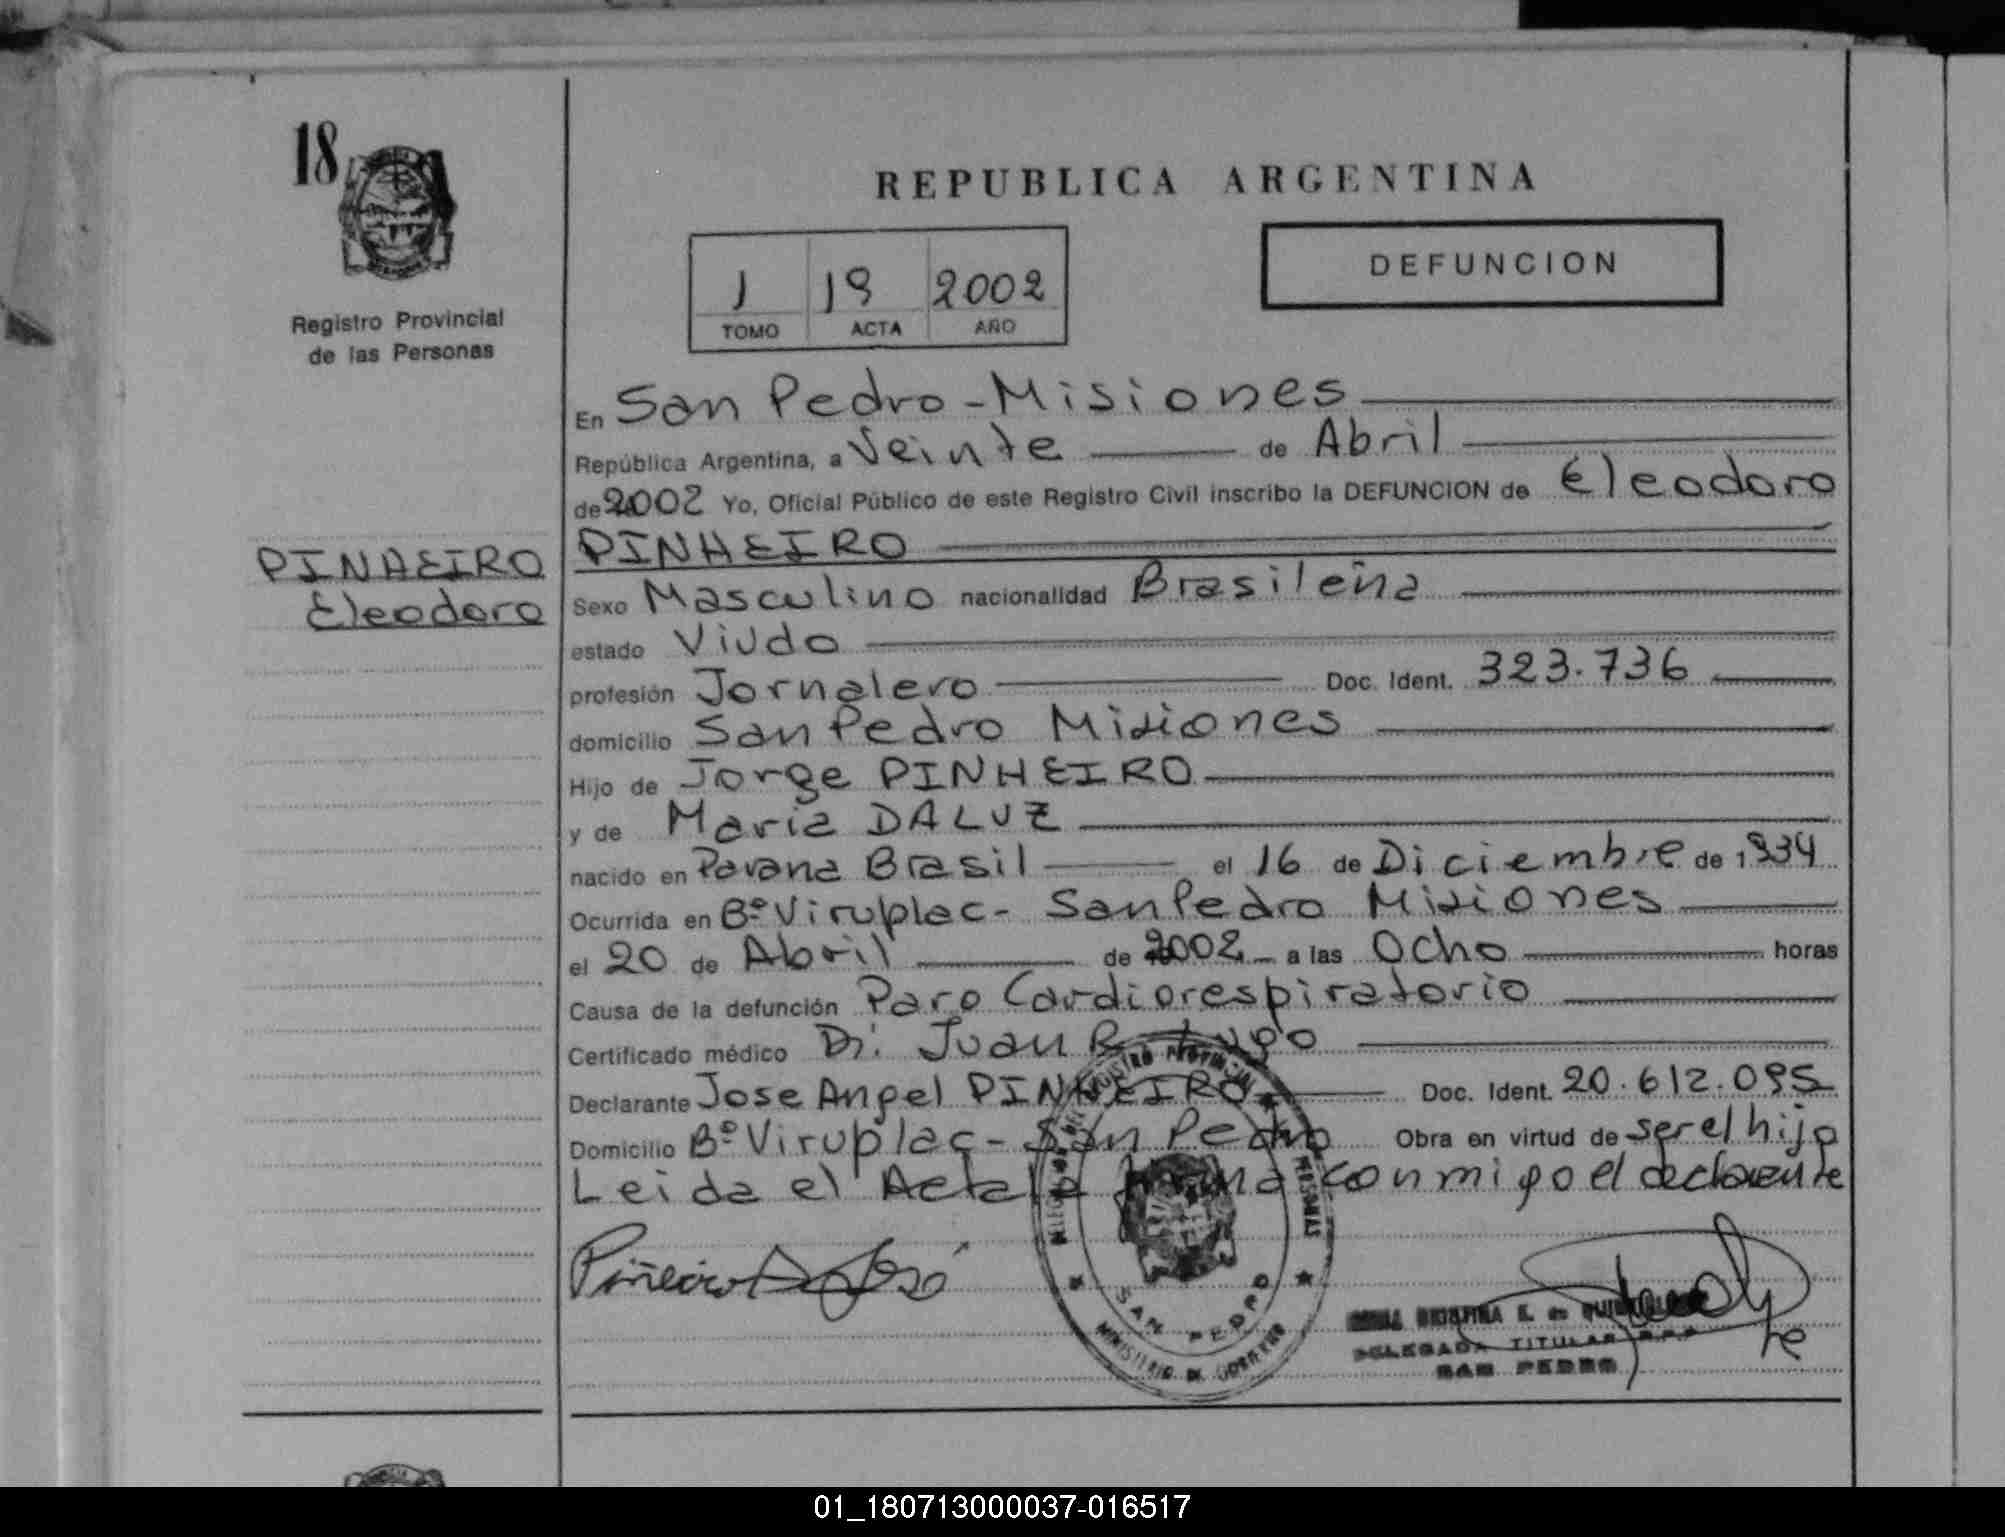 18
REPUBLICA ARGENTINA
DEFUNCION
1 19 2002
TOMO ACTA AÑO
Registro Provincial
de las Personas
En San Pedro - Misiones
República Argentina, a Veinte de Abril
de 2002 Yo, Oficial Público de este Registro Civil inscribo la DEFUNCION de Eleodoro
PINHEIRO
PINHEIRO
Eleodoro
Sexo Masculino nacionalidad Brasileña
estado Viudo
profesión Jornalero Doc. Ident. 323.736
domicilio San Pedro Misiones
Hijo de Jorge PINHEIRO
y de Maria DALUZ
nacido en Parana Brasil el 16 de Diciembre de 1934
Ocurrida en Bº Viruplac - San Pedro Misiones
el 20 de Abril de 2002 a las Ocho horas
Causa de la defunción Paro Cardiorespiratorio
Certificado médico Dr. Juan
Declarante Jose Angel PINHEIRO Doc. Ident. 20.612.095
Domicilio Bº Viruplac - San Pedro Obra en virtud de ser el hijo
Leida el Acta la firma conmigo el declarente
REGISTRO PROVINCIAL
PERSONAS
SAN PEDRO
MINISTERIO DE GOBIERNO
DELEGADA TITULAR R.P.P.
SAN PEDRO
01_180713000037-016517